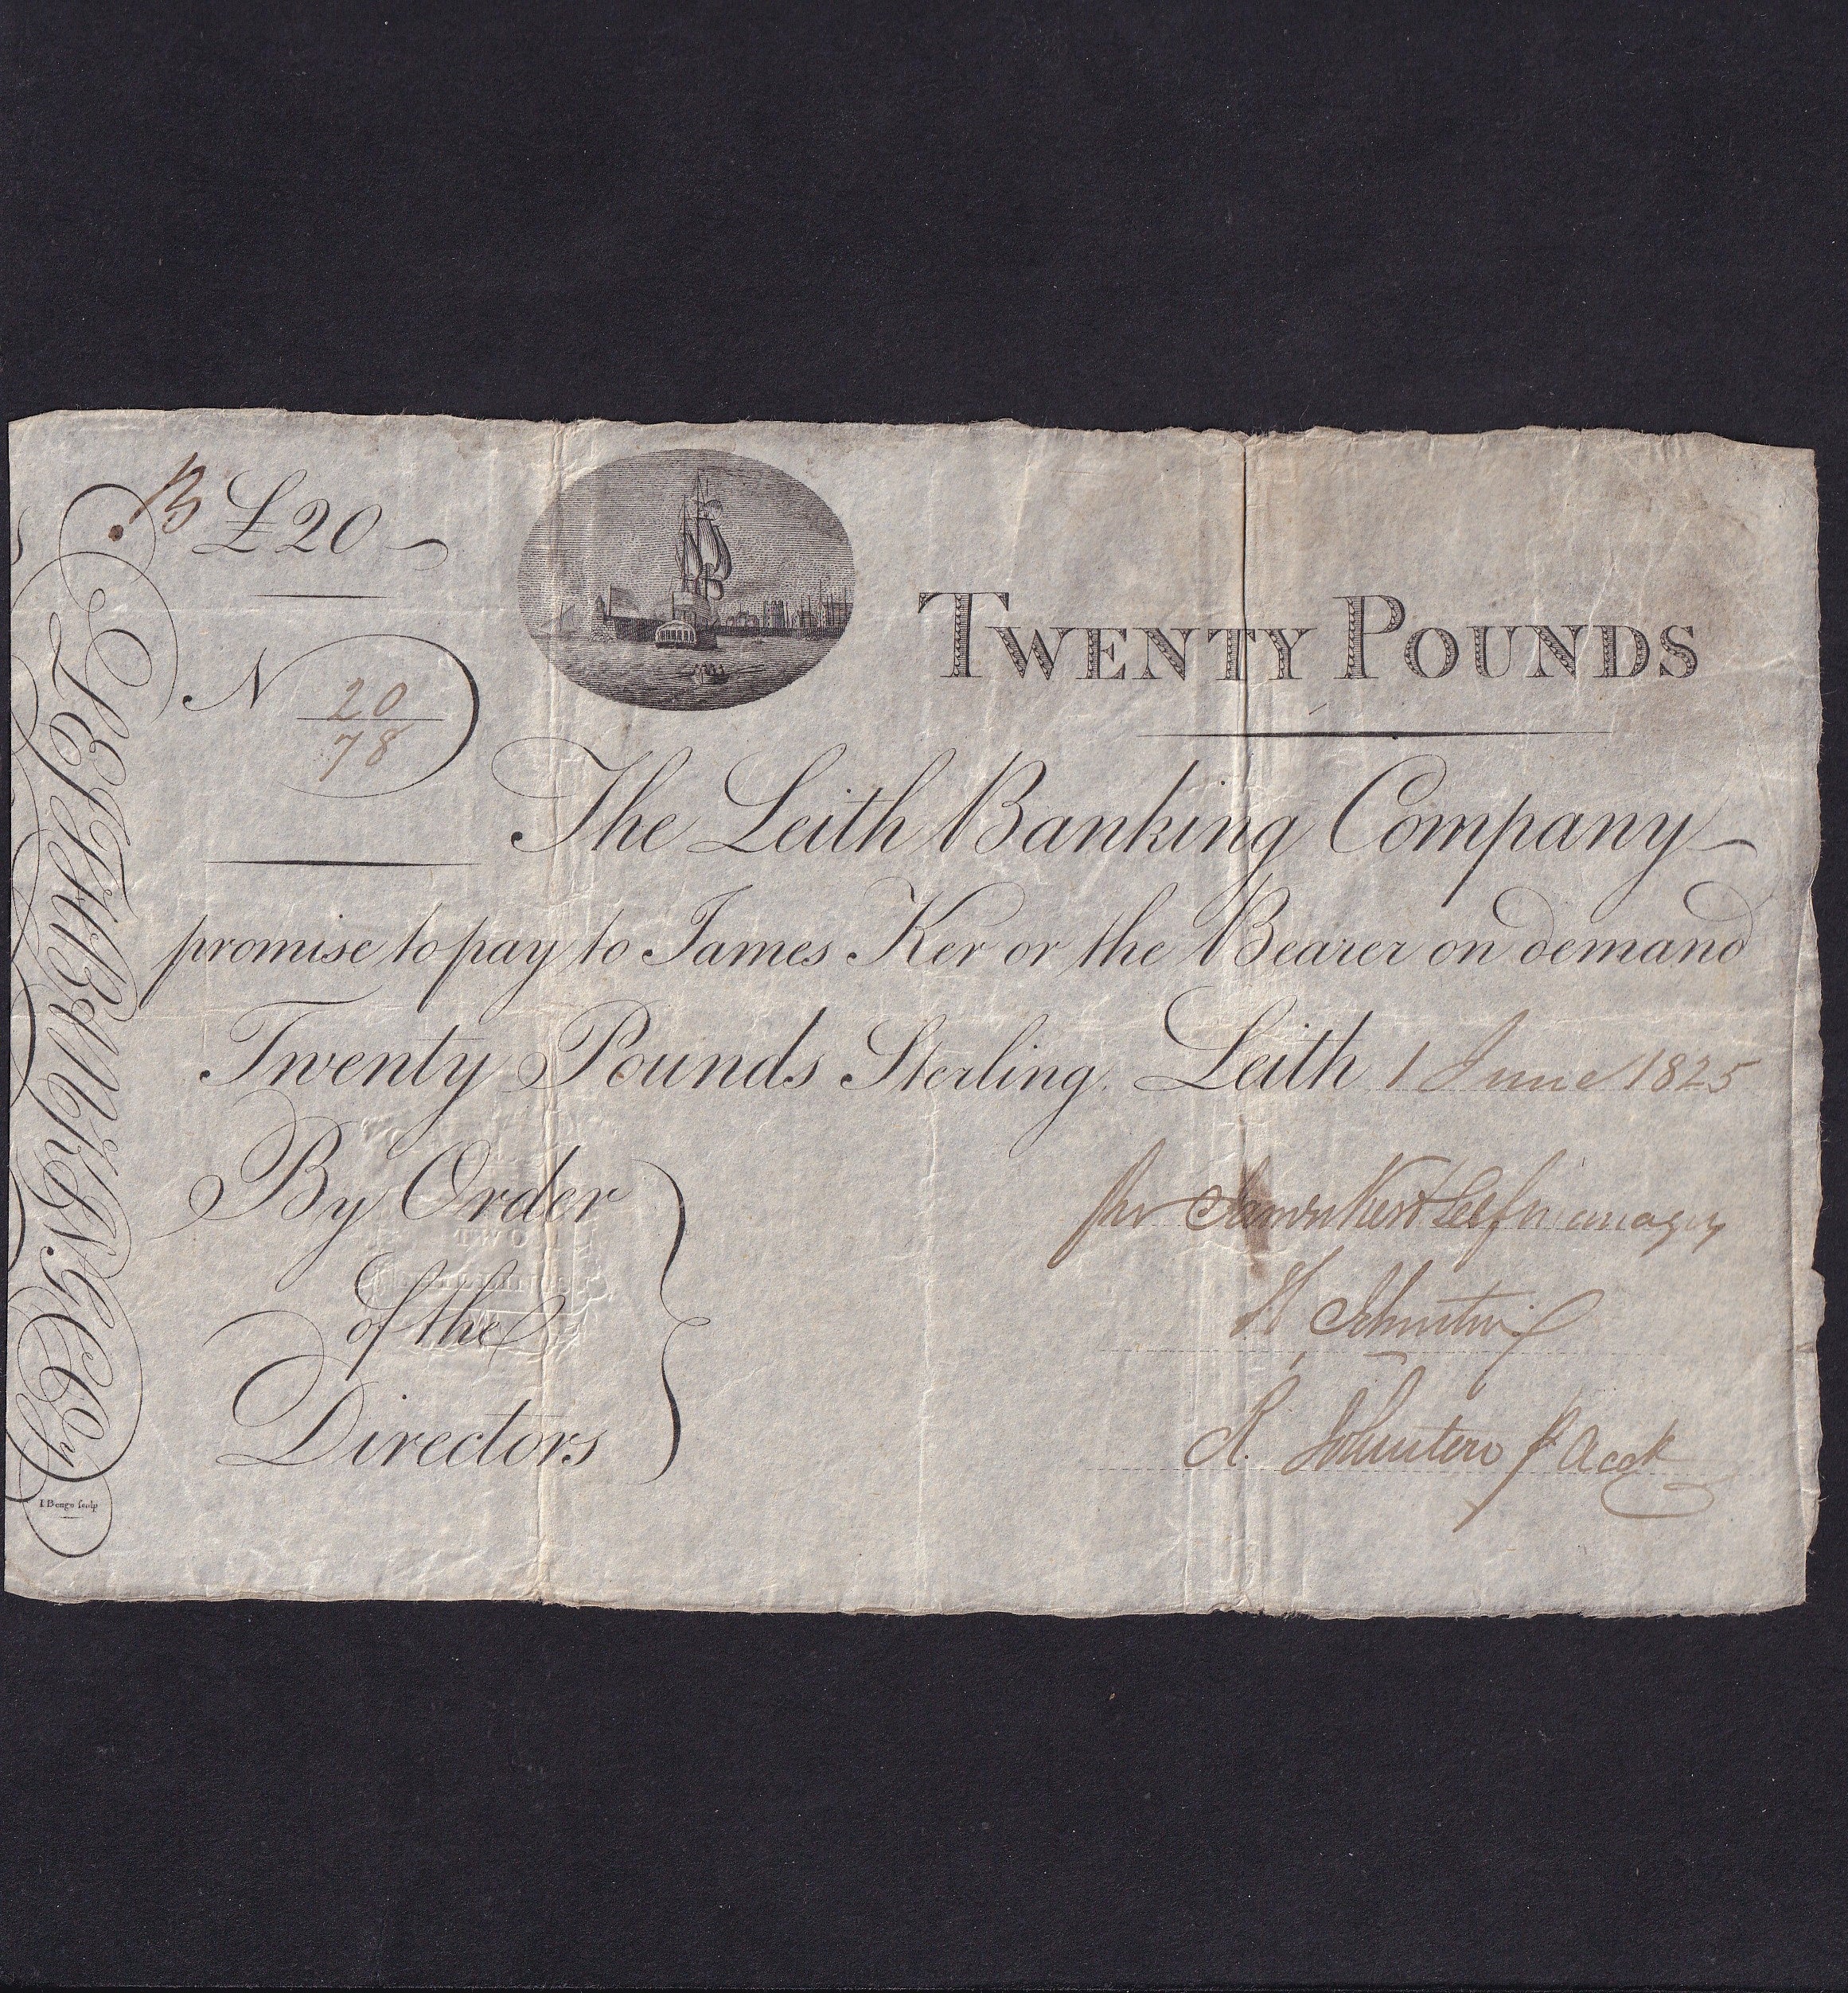 B £20
TWENTY POUNDS
N 20/78
The Leith Banking Company
promise to pay to James Ker or the Bearer on demand
Twenty Pounds Sterling. Leith 1 June 1825
By Order
of the
Directors
TWO
for James Ker manager
H Johnston
R. Johnston Acct
I Beugo sculp